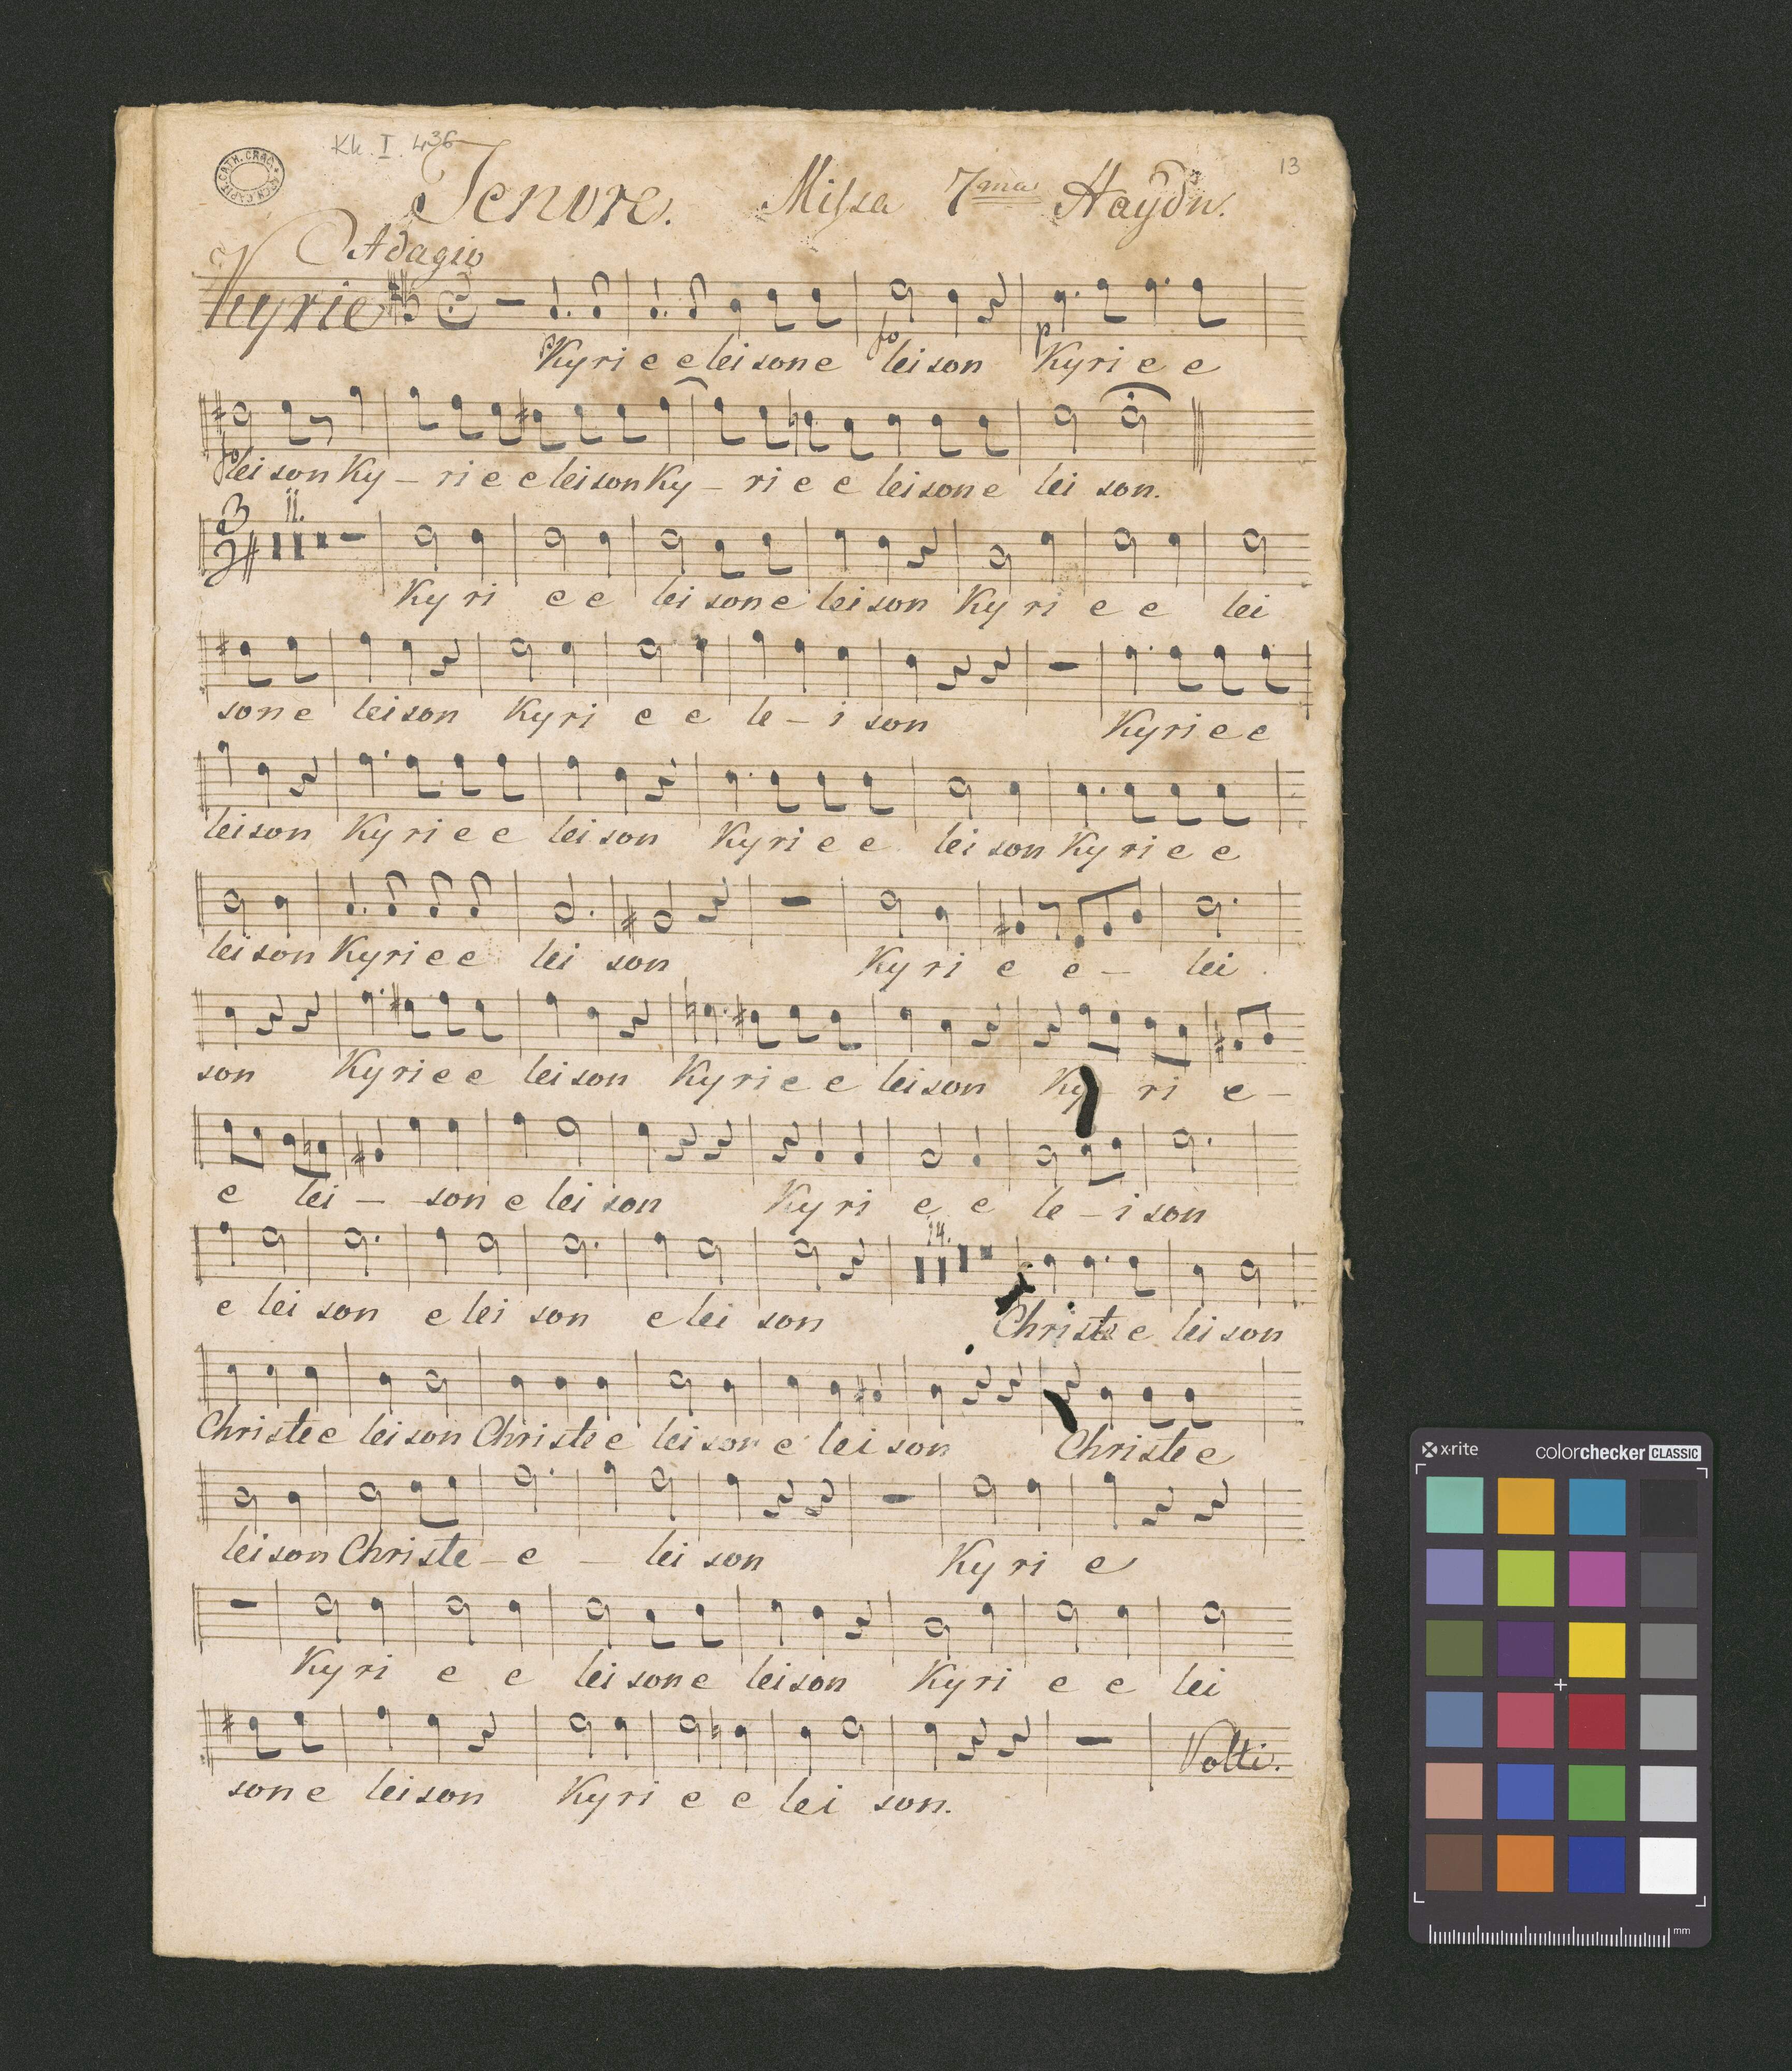 Kk. I. 436
13
ARCH. CAPIT. CATH. CRAC.
Tenore. Missa 7ma Haÿdn.
Adagio
Kyrie
p fo p
Kyri e e leison e leison Kyri e e
fo
leison Ky - ri e e leison Ky - ri e e leison e lei son.
3 11.
Kyri e e leison e leison Kyri e e lei
son e leison Kyri e e le - i son Kyri e e
leison Kyri e e leison Kyri e e leison Kyri e e
leison Kyri e e lei son Kyri e e - lei
son Kyri e e leison Kyri e e leison Ky ri e -
e lei - son e lei son Kyri e e le - i son
14.
e lei son e lei son e lei son Christe e leison
Christe e leison Christe e leison e leison Christe e
leison Christe - e - lei son Kyri e
Kyri e e leison e leison Kyri e e lei
son e leison Kyri e e lei son.
Volti.
x·rite colorchecker CLASSIC
mm